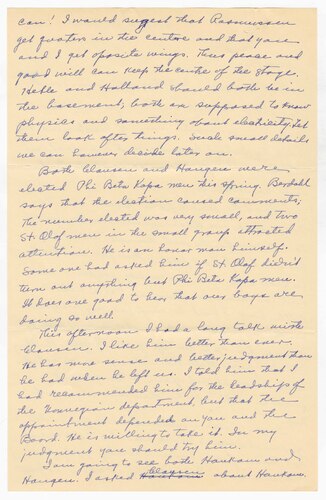 can! I would suggest that Rasmussen
get quarters in the centre and that you
and I get oposite wings. Then peace and
good will can keep the centre of the stage.
Helle and Holland should both be in
the basement, both are supposed to know
physics and something about electricity. Let
them look after things. Such small details
we can however decide later on.
Both Clausen and Haugen were
elected Phi Beta Kapa men this spring. Bordahl
says that the election caused comments,
The number elected was very small, and two
St. Olaf men in the small group attracted
attention. He is an honor man himself.
Some one had asked him if St. Olaf didn't
turn out anything but Phi Beta Kapa men.
It does one good to hear that our boys are
doing so well.
This afternoon I had a long talk with
Clausen. I like him better than ever.
He has more sense and better judgment than
he had when he left us. I told him that I
had recommended him for the headship of
the Norwegian department, but that the
appointment depended on you and the
Board. He is willing to take it. In my
judgment you should try him.
I am going to see both Hankam and
Haugen. I asked Clausen about Hankam.